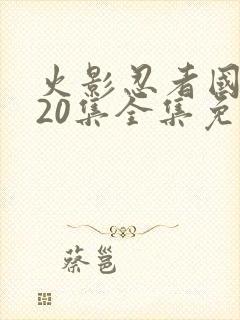 火影忍者國
20集全集免
蔡邕